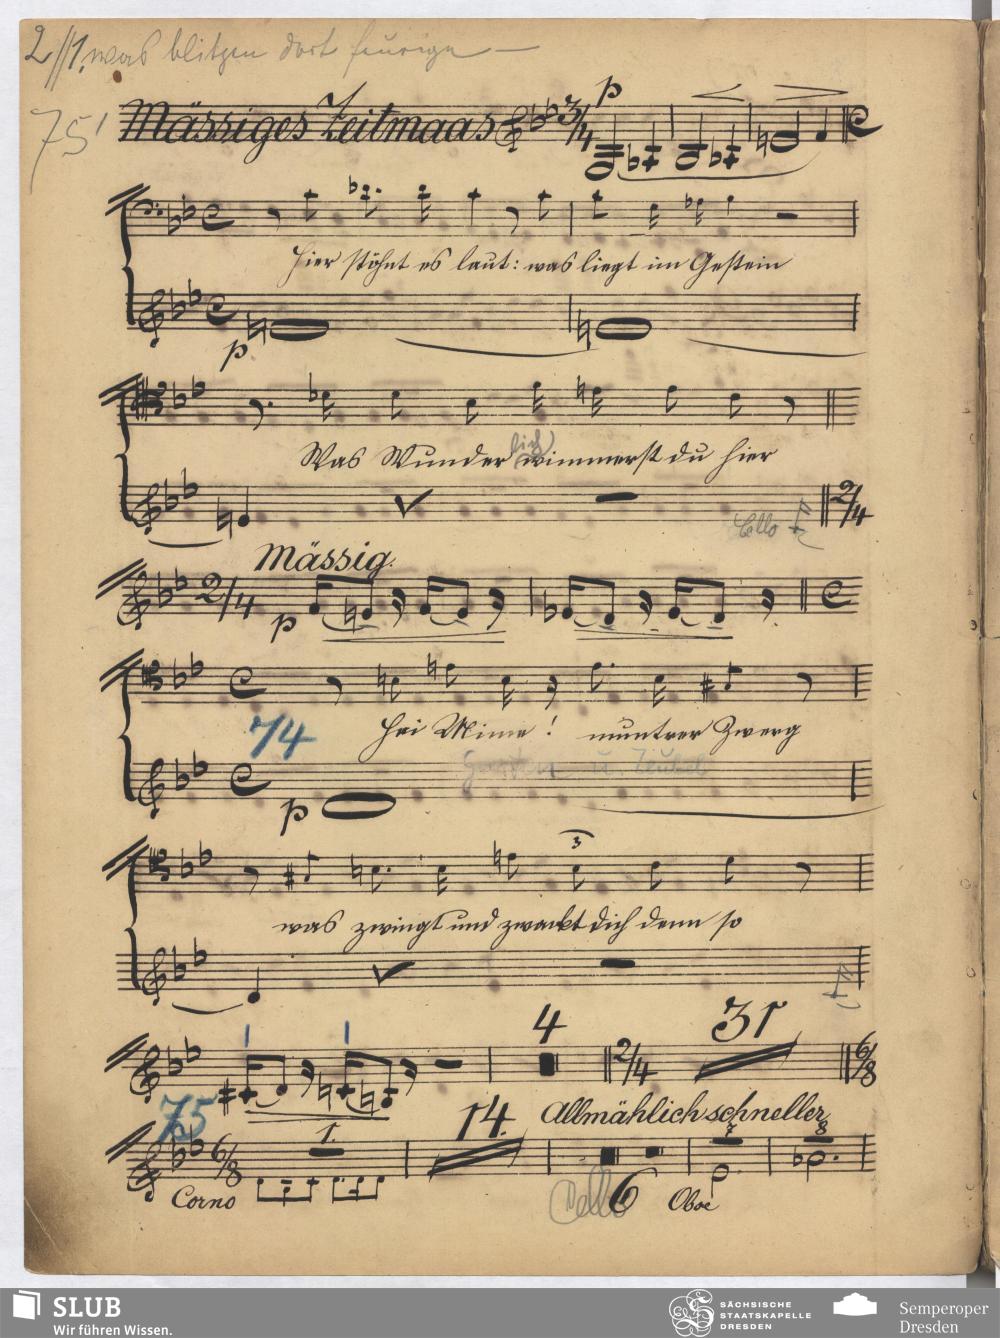 2//1. was blitzen dort feurige —
75 Mässiges Zeitmaas 3/4 p
Hier stöhnt es laut: was liegt im Gestein
p
Was Wunder wimmerst du hier
lich
Cello 2/4
Mässig.
2/4 p
Hei Mime! muntrer Zwerg
74
p
3
was zwingt und zwackt dich denn so
1 1 4 2/4 31 6/8
75 14. Allmählich schneller
6/8 1. 7 8
Corno Cello 6 Oboe
SLUB
Wir führen Wissen.
SÄCHSISCHE
STAATSKAPELLE
DRESDEN
Semperoper
Dresden